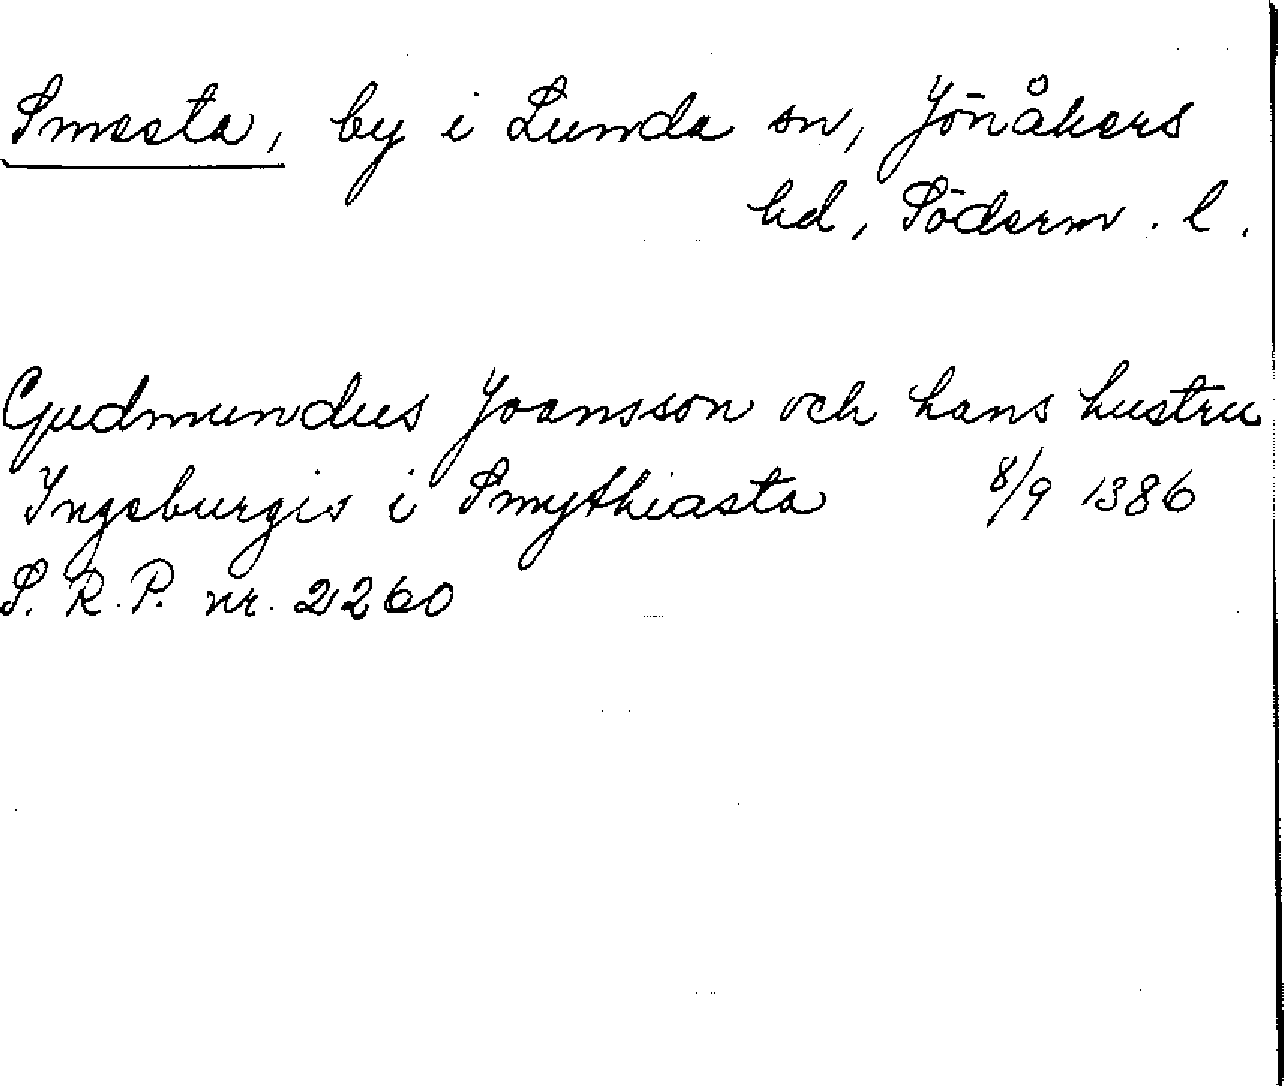 Smesta, by i Lunda sn, Jönåkers
hd, Söderm. l.
Gudmundus Joansson och hans hustru
Ingeburgis i Smythiasta 8/9 1386
S. R. P. nr. 2260